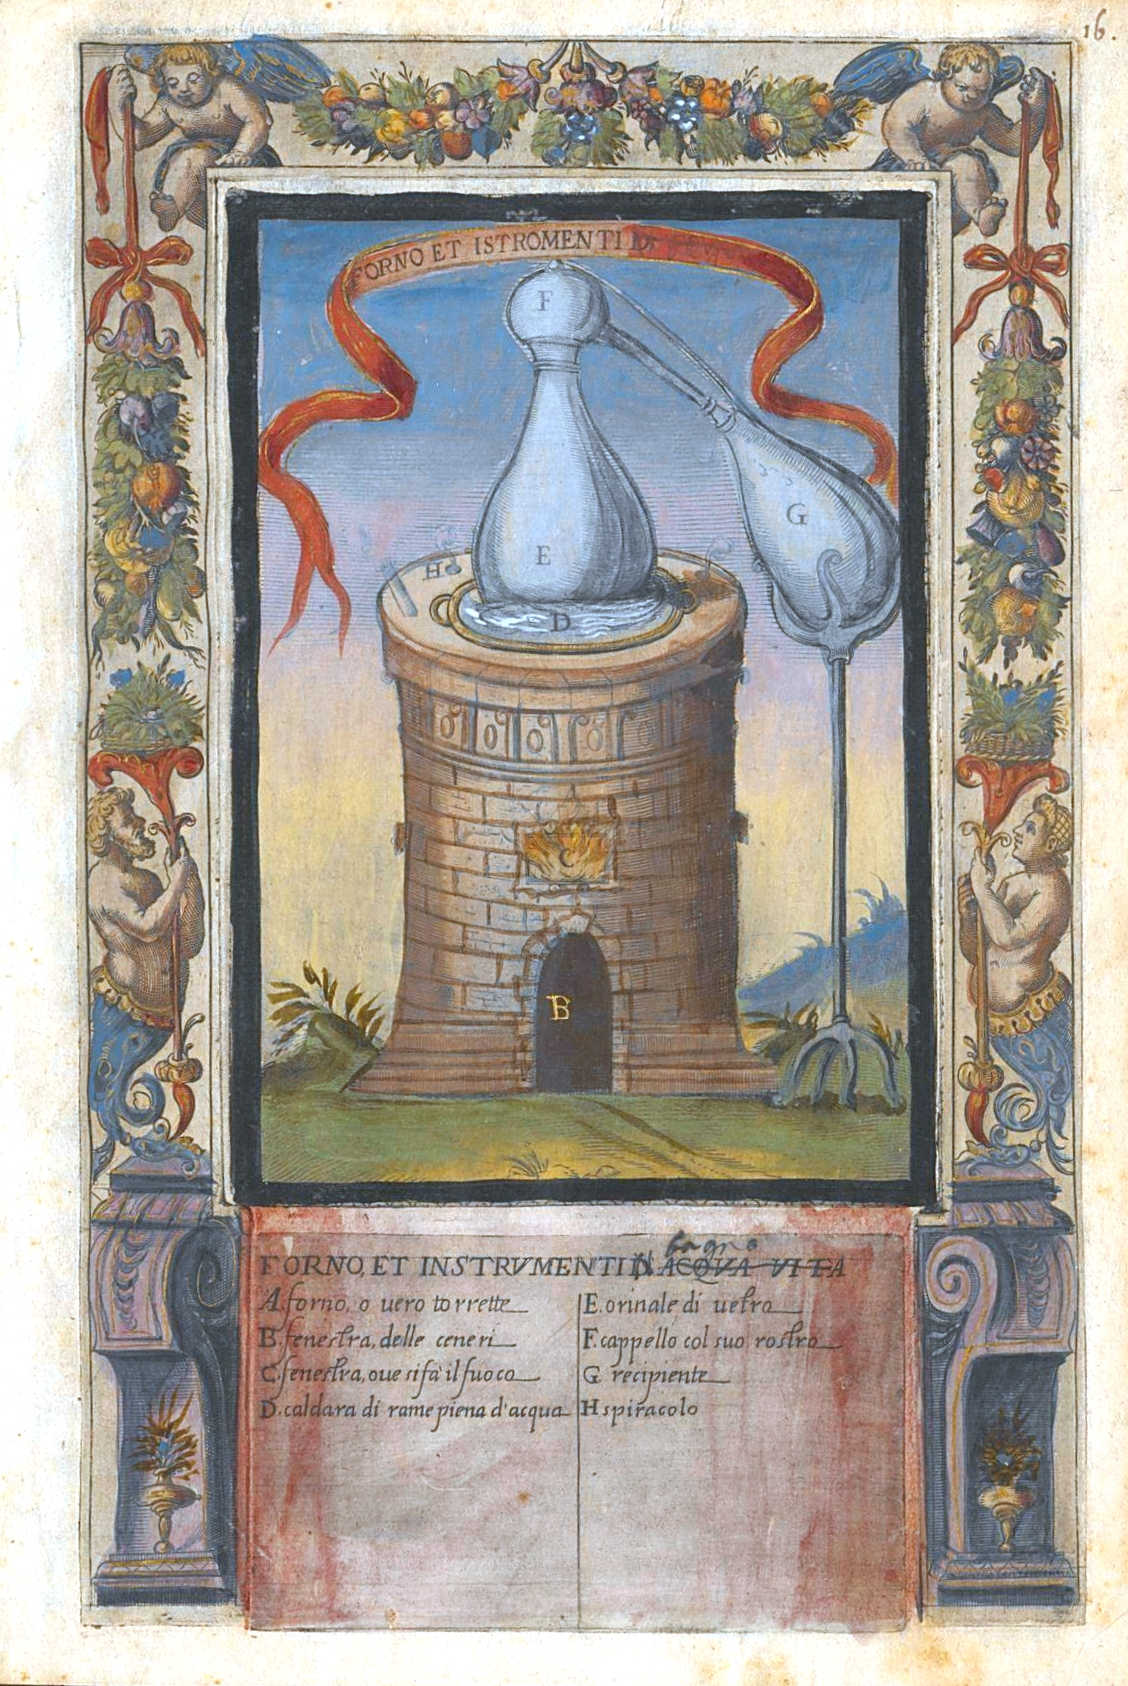 16.
FORNO ET ISTROMENTI
F
G
E
H
D
C
B
bagno
FORNO, ET INSTRVMENTI D ACQVA VITA
A. forno, o uero torrette
B. fenestra, delle ceneri
C. fenestra, oue si fà il fuoco
D. caldara di rame piena d'acqua
E. orinale di uetro
F. cappello col suo rostro
G recipiente
H spiracolo